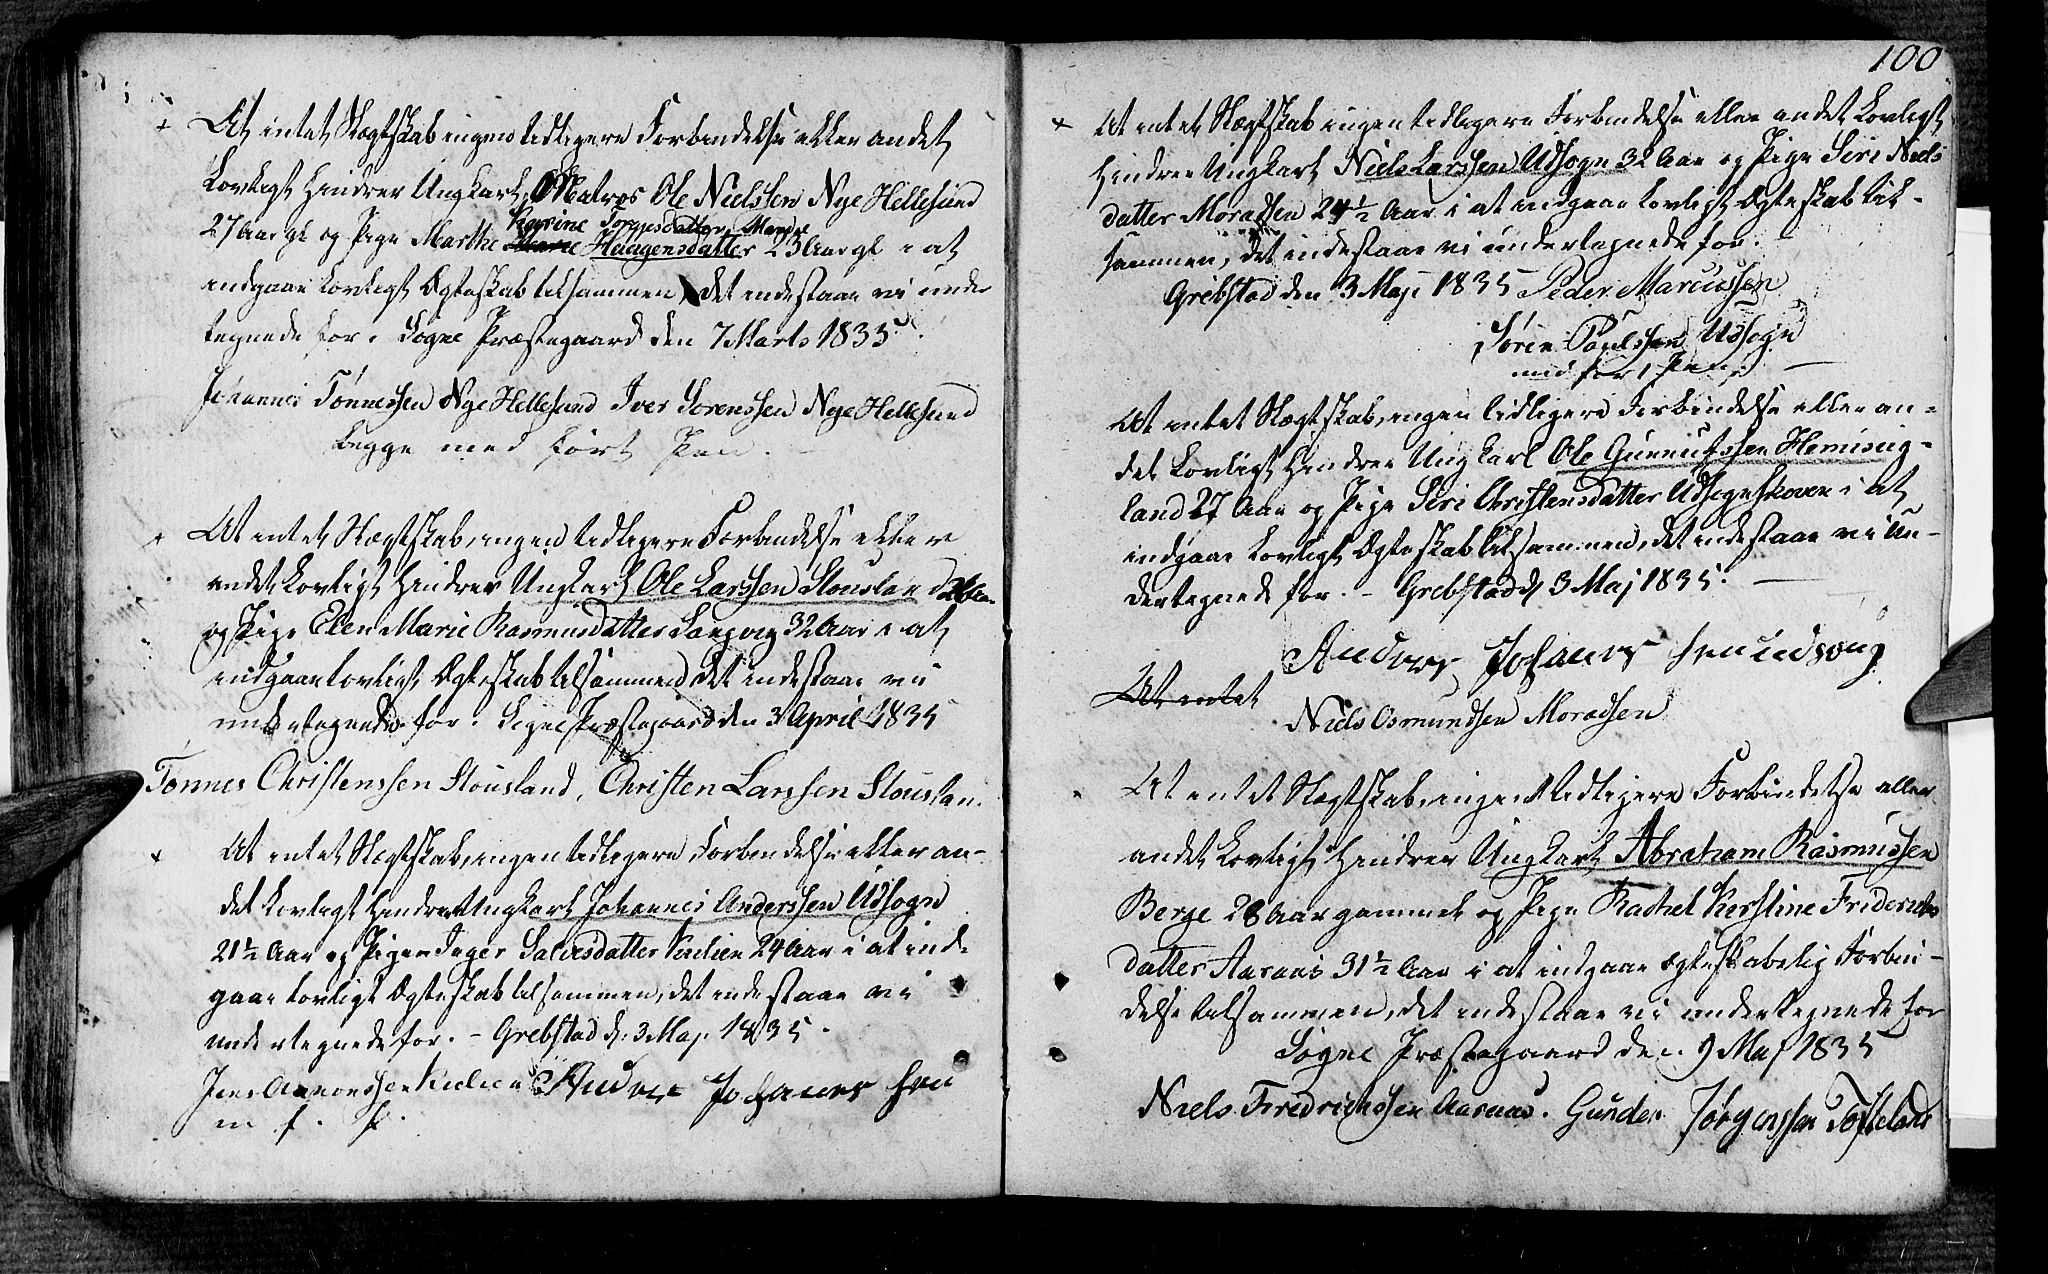 + At intet Slægtskab ingen tidligere Forbindelse eller andet
Lovligt hindrer Ungkarl Matros Ole Nielssen Nye Hellesund
Karine Torgesdatter Mandal
27 Aar gl og Pige Marthe Haagensdatter 23 Aar gl i at
indgaae lovligt Ægteskab tilsammen, det indestaae vi under
tegnede for. Sogne Præstegaard den 7 Marts 1835
Johannes Tønnessen Nye Hellesund Iver Sørenssen Nye Hellesund
begge med ført Pen.
At intet Slægtskab, ingen tidligere Forbindelse eller
andet Lovligt hindrer Ungkarl Ole Larssen Stousland
og Pige Elen Marie Rasmusdatter Langvag 32 Aar i at
indgaae lovligt Ægteskab tilsammen det indestaae vi
undertegnede for. Sogne Præstegaard den 3 April 1835
Tønnes Christenssen Stousland, Christen Larssen Stouslan.
+ At intet Slægtskab, ingen tidligere Forbindelse eller an-
det Lovligt hindrer Ungkarl Johannes Anderssen Udsogn
21½ Aar og Pigen Inger Salvesdatter 24 Aar i at ind-
gaae lovligt Ægteskab tilsammen, det indestaae vi
undertegnede for. - Grebstad d: 3 Maj 1835.
Jens Aanonssen Anders Johannes sen
m. f. P.
100
+ At intet Slægtskab ingen tidligere Forbindelse eller andet Lovligt
hindrer Ungkarl Niels Larssen Udsogn 32 Aar og Pige Siri Niels
datter Moradsen 24½ Aar i at indgaae lovligt Ægteskab til-
sammen, det indestaae vi undertegnede for.
Grebstad den 3 Maj 1835 Peder Marcussen
Søren Poulssen Udsogn
med ført Pen.
At intet Slægtskab, ingen tidligere Forbindelse eller an-
det Lovligt hindrer Ungkarl Ole Gunnufssen Hemisag-
land 27 Aar og Pige Siri Christensdatter Udsogneskoven i at
indgaae lovligt Ægteskab tilsammen, det indestaae vi Un-
dertegnede for. - Grebstad d 3 Maj 1835.
Anders Johanes sen udsong
At intet
Niels Osmundsen Moradsen
At intet Slægtskab, ingen tidligere Forbindelse eller
andet Lovligt hindrer Ungkarl Abraham Rasmussen
Berge 28 Aar gammel og Pige Rachel Kerstine Friderichs
datter Aaraas 31½ Aar i at indgaae ægteskabelig Forbin-
delse tilsammen, det indestaae vi undertegnede for
Sogne Præstegaard den 9 Maj 1835
Niels Fredrichssen Aaraas. Gunder Jørgenssen Tofteland